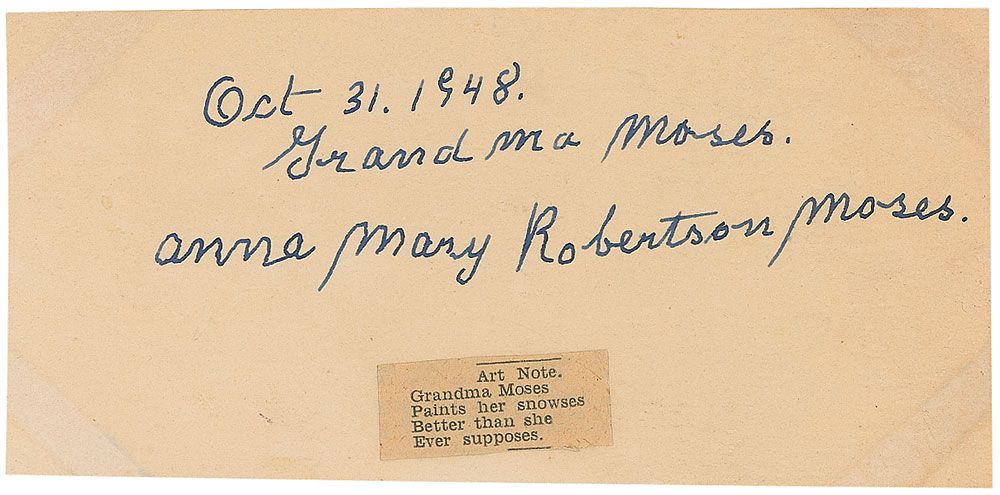 Oct 31. 1948.
Grandma Moses.
anna Mary Robertson Moses.
Art Note.
Grandma Moses
Paints her snowses
Better than she
Ever supposes.